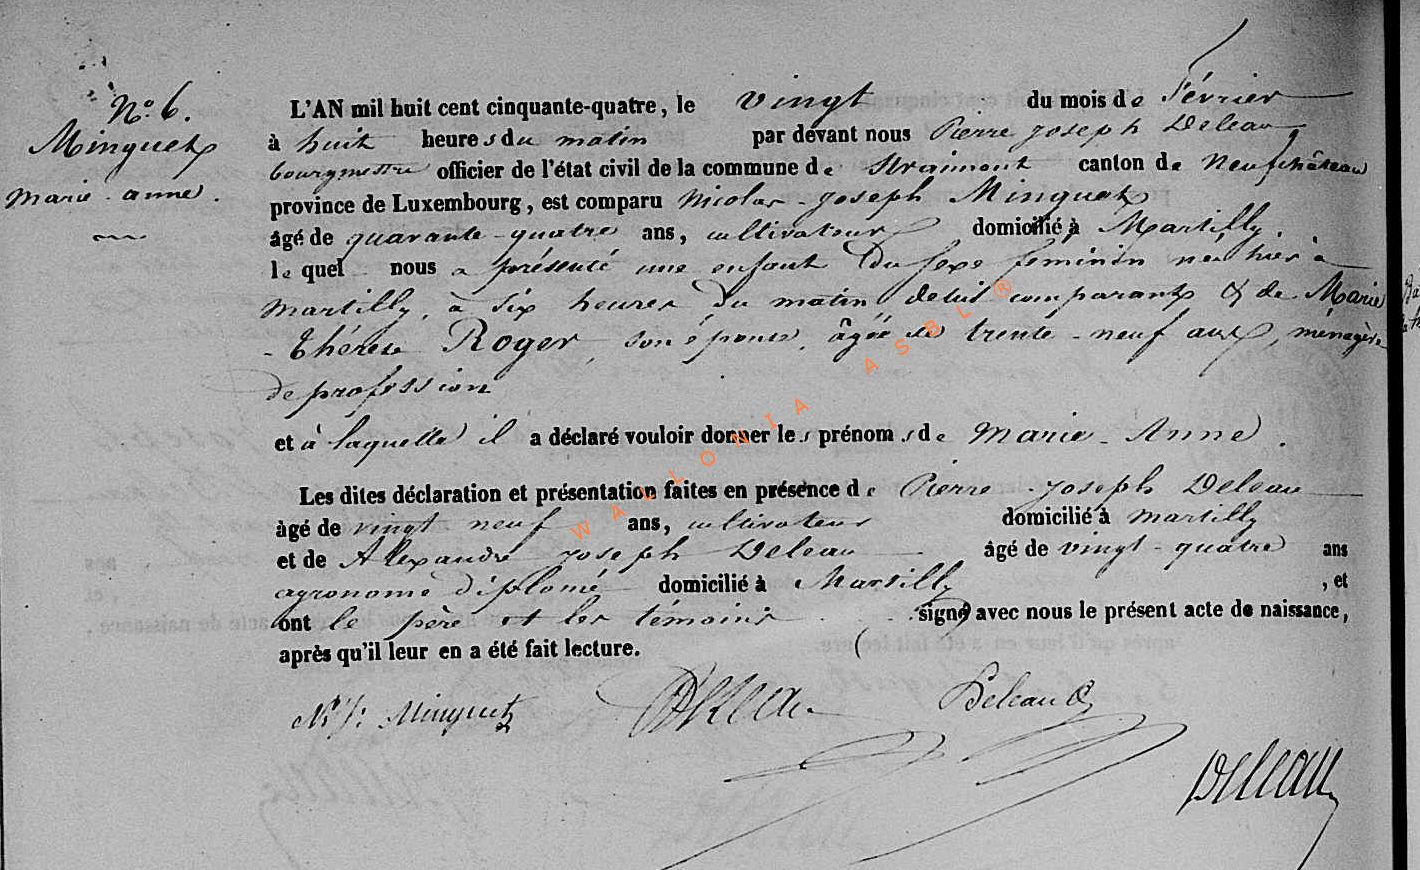 N° 6.
Minguet
marie-anne.
L'AN mil huit cent cinquante-quatre, le vingt du mois de Février
à huit heures du matin par devant nous Pierre Joseph Deleau,
bourgmestre officier de l'état civil de la commune de Straimont canton de Neufchâteau
province de Luxembourg, est comparu Nicolas-Joseph Minguet
âgé de quarante-quatre ans, cultivateur domicilié à Martilly,
lequel nous a présenté une enfant du sexe feminin née hier à
Martilly, à six heures du matin de lui comparant & de Marie
-Thérèse Roger, son épouse, âgée de trente-neuf ans, ménagère
de profession
et à laquelle il a déclaré vouloir donner les prénoms de Marie-Anne.
Les dites déclaration et présentation faites en présence de Pierre-Joseph Deleau
àgé de vingt neuf ans, cultivateur domicilié à Martilly
et de Alexandre Joseph Deleau âgé de vingt-quatre ans
agronome diplomé domicilié à Martilly, et
ont le père et les témoins signé avec nous le présent acte de naissance,
après qu'il leur en a été fait lecture.
N. J. Minguet Deleau Deleau
Deleau
WALLONIA ASBL ®